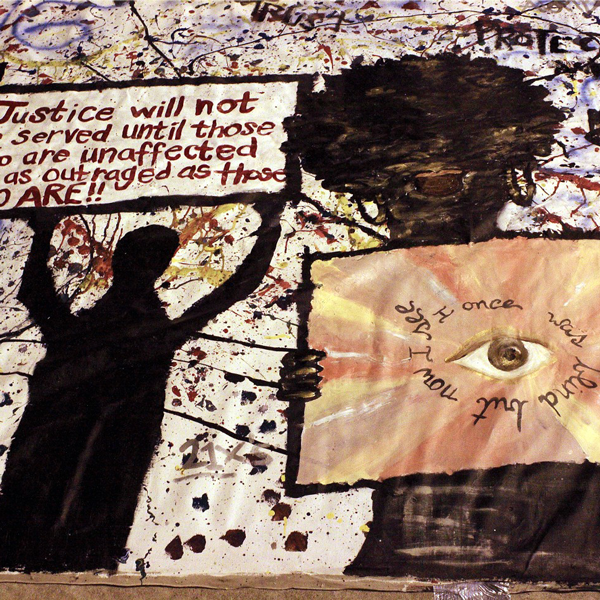 TRUST
PROTEC
Justice will not
served until those
o are unaffected
as outraged as those
O ARE!!
I once was blind but now I see